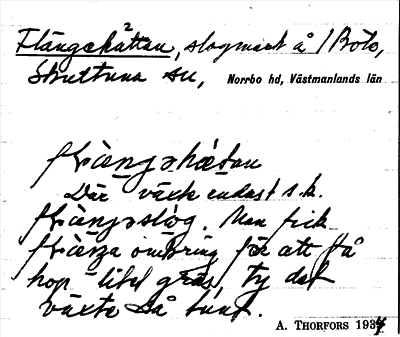 Flängehåttan, slogmark å 1 Bolo,
Skultuna sn, Norrbo hd, Västmanlands län
Där växte endast s.k.
Man fick
flänga omkring för att få
hop litet gräs, ty det
växte så tunt.
A. THORFORS 1934